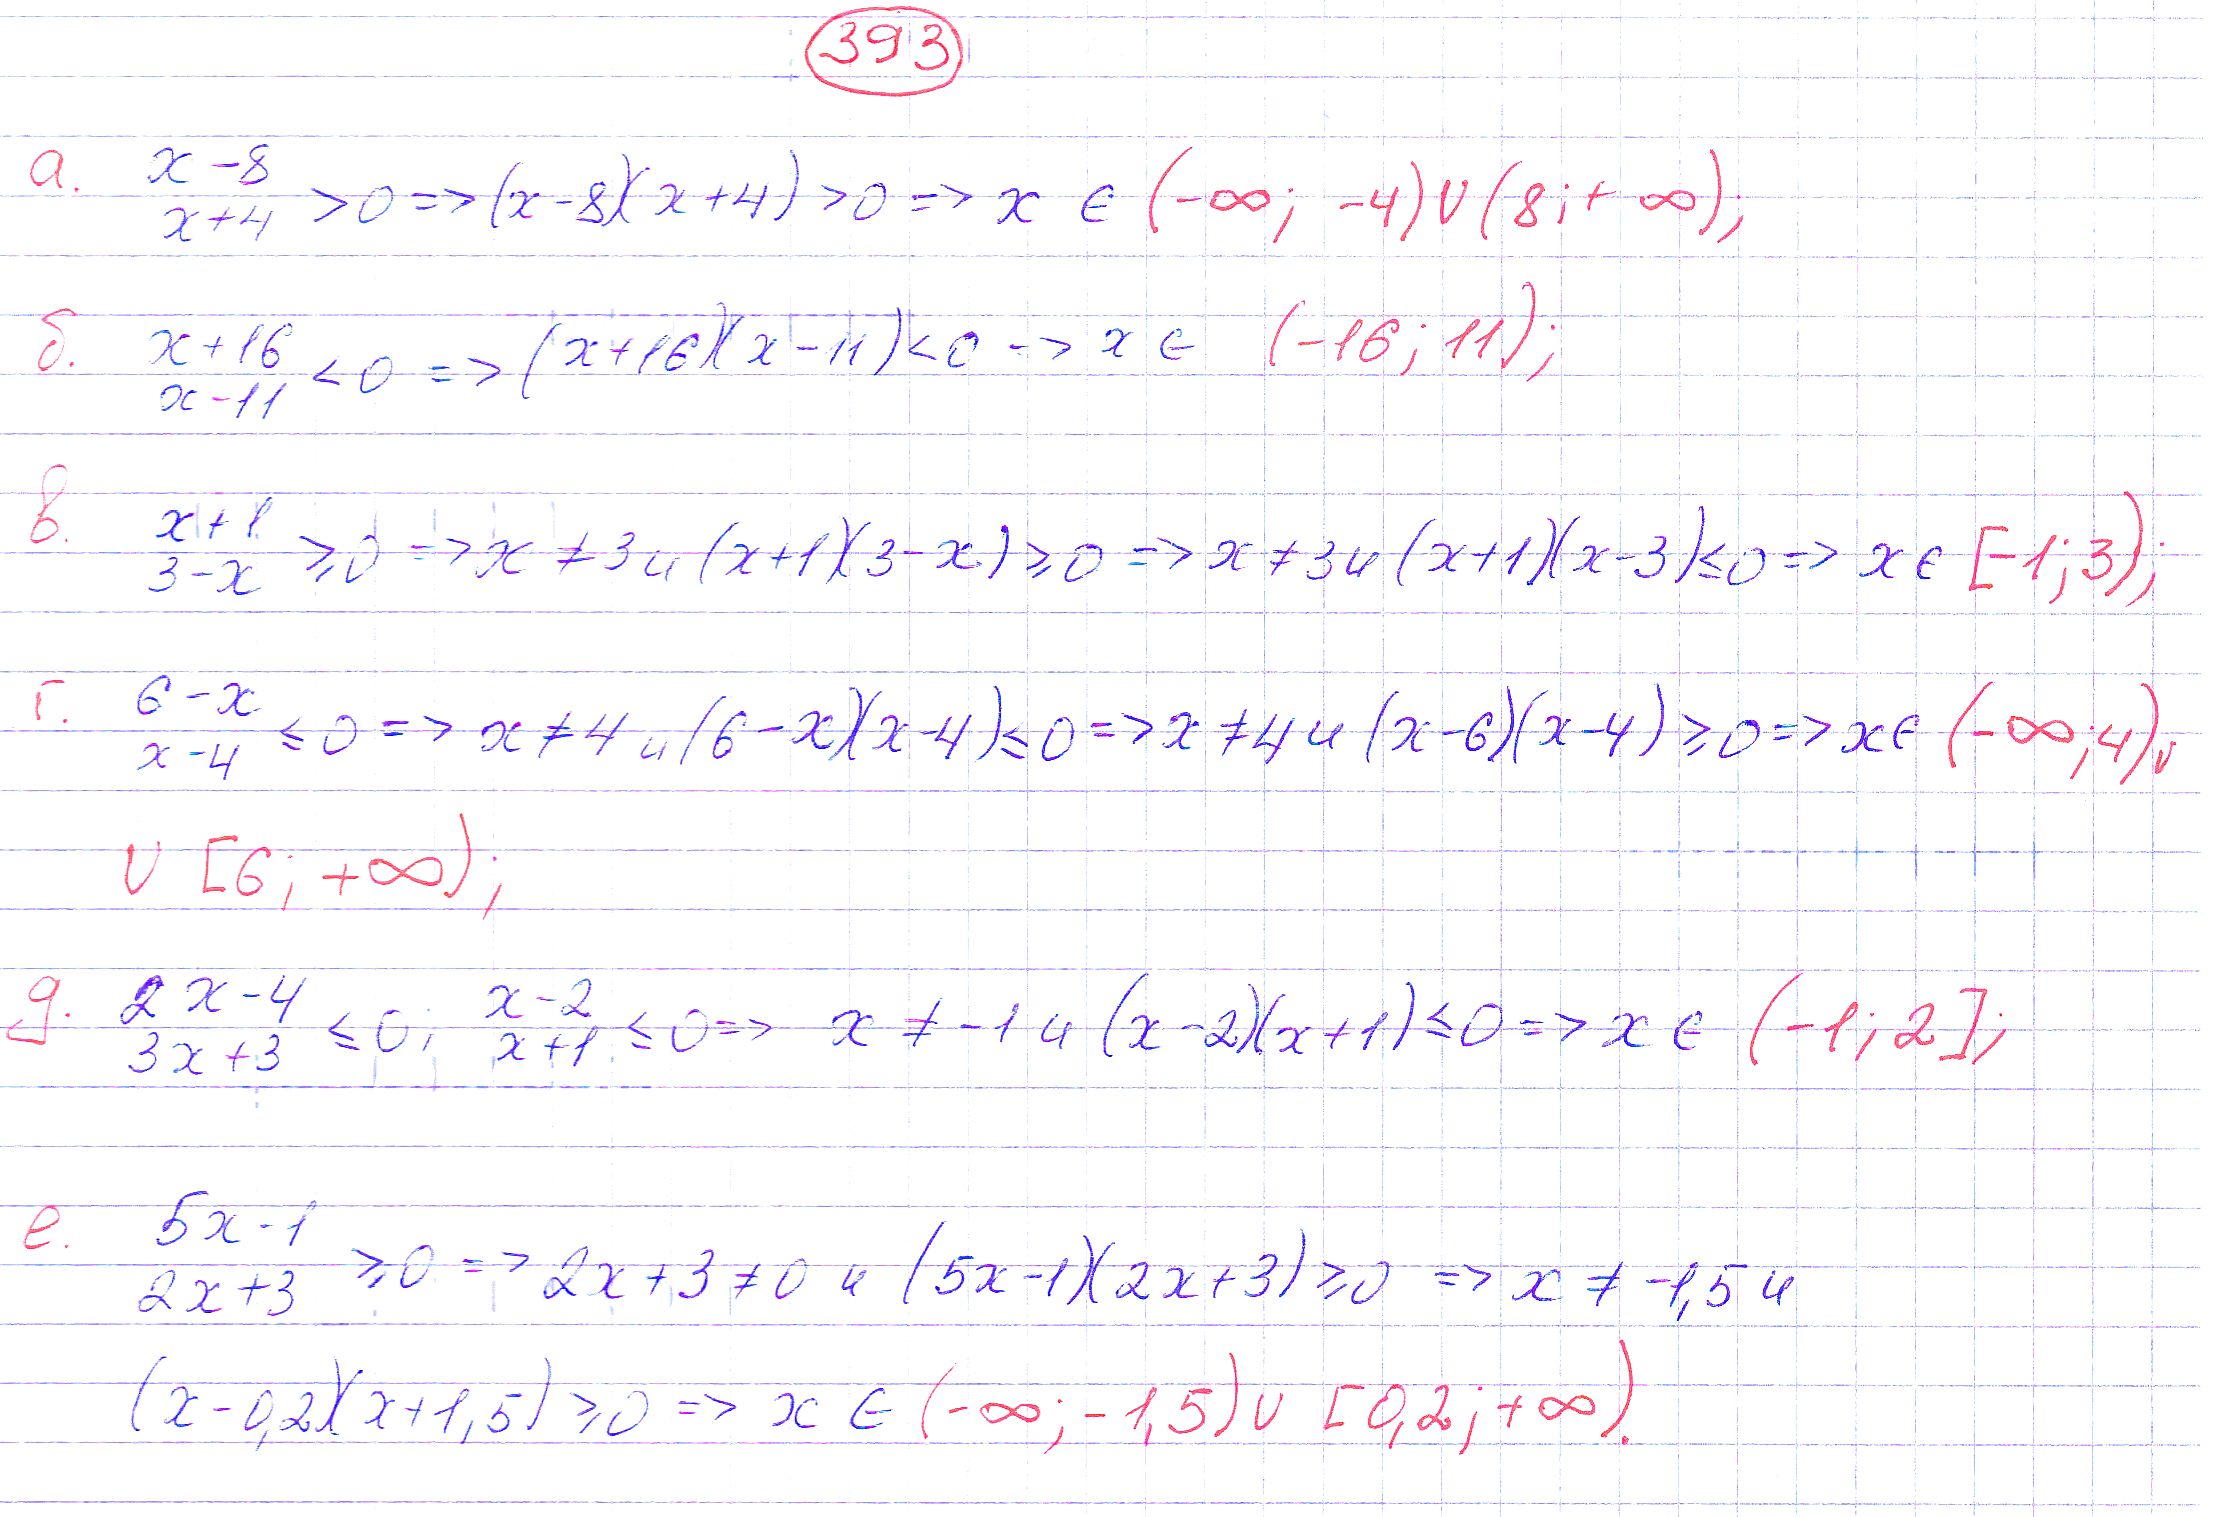 393
а. (x-8)/(x+4) >0 => (x-8)(x+4) >0 => x ∈ (-∞; -4) ∪ (8; +∞);
б. (x+16)/(x-11) <0 => (x+16)(x-11)<0 => x ∈ (-16; 11);
в. (x+1)/(3-x) ≥0 => x ≠ 3 и (x+1)(3-x) ≥0 => x ≠ 3 и (x+1)(x-3) ≤0 => x ∈ [-1; 3);
г. (6-x)/(x-4) ≤0 => x ≠ 4 и (6-x)(x-4) ≤0 => x ≠ 4 и (x-6)(x-4) ≥0 => x ∈ (-∞; 4) ∪
∪ [6; +∞);
д. (2x-4)/(3x+3) ≤0; (x-2)/(x+1) ≤0 => x ≠ -1 и (x-2)(x+1) ≤0 => x ∈ (-1; 2];
е. (5x-1)/(2x+3) ≥0 => 2x+3 ≠ 0 и (5x-1)(2x+3) ≥0 => x ≠ -1,5 и
(x-0,2)(x+1,5) ≥0 => x ∈ (-∞; -1,5) ∪ [0,2; +∞).